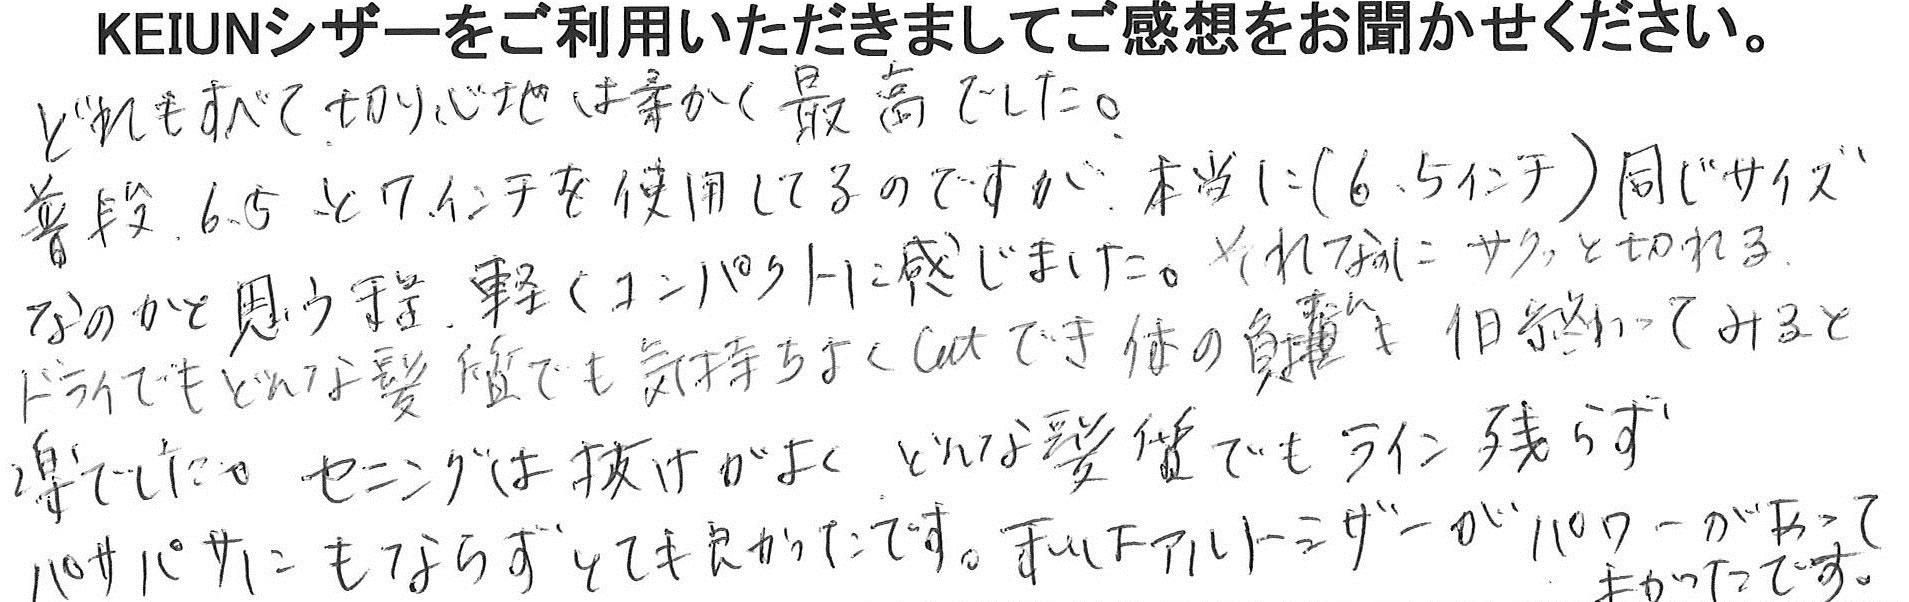 KEIUNシザーをご利用いただきましてご感想をお聞かせください。
どれもすべて切り心地は柔かく最高でした。
普段、6.5と7インチを使用してるのですが、本当に(6.5インチ)同じサイズ
なのかと思う程、軽くコンパクトに感じました。それなのにサクッと切れる、
ドライでもどんな髪質でも気持ちよくCutでき体の負担も1日終わってみると
楽でした。セニングは抜けがよくどんな髪質でもライン残らず
パサパサにもならずとても良かったです。私はアルトシザーがパワーがあって
よかったです。